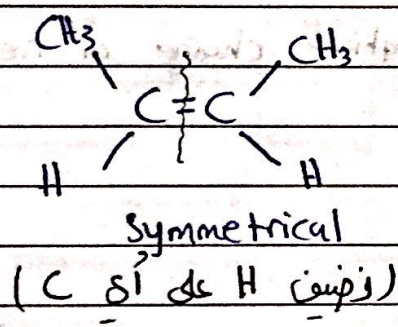 CH3 CH3
C=C
H H
Symmetrical
(نضيف H على أي C)